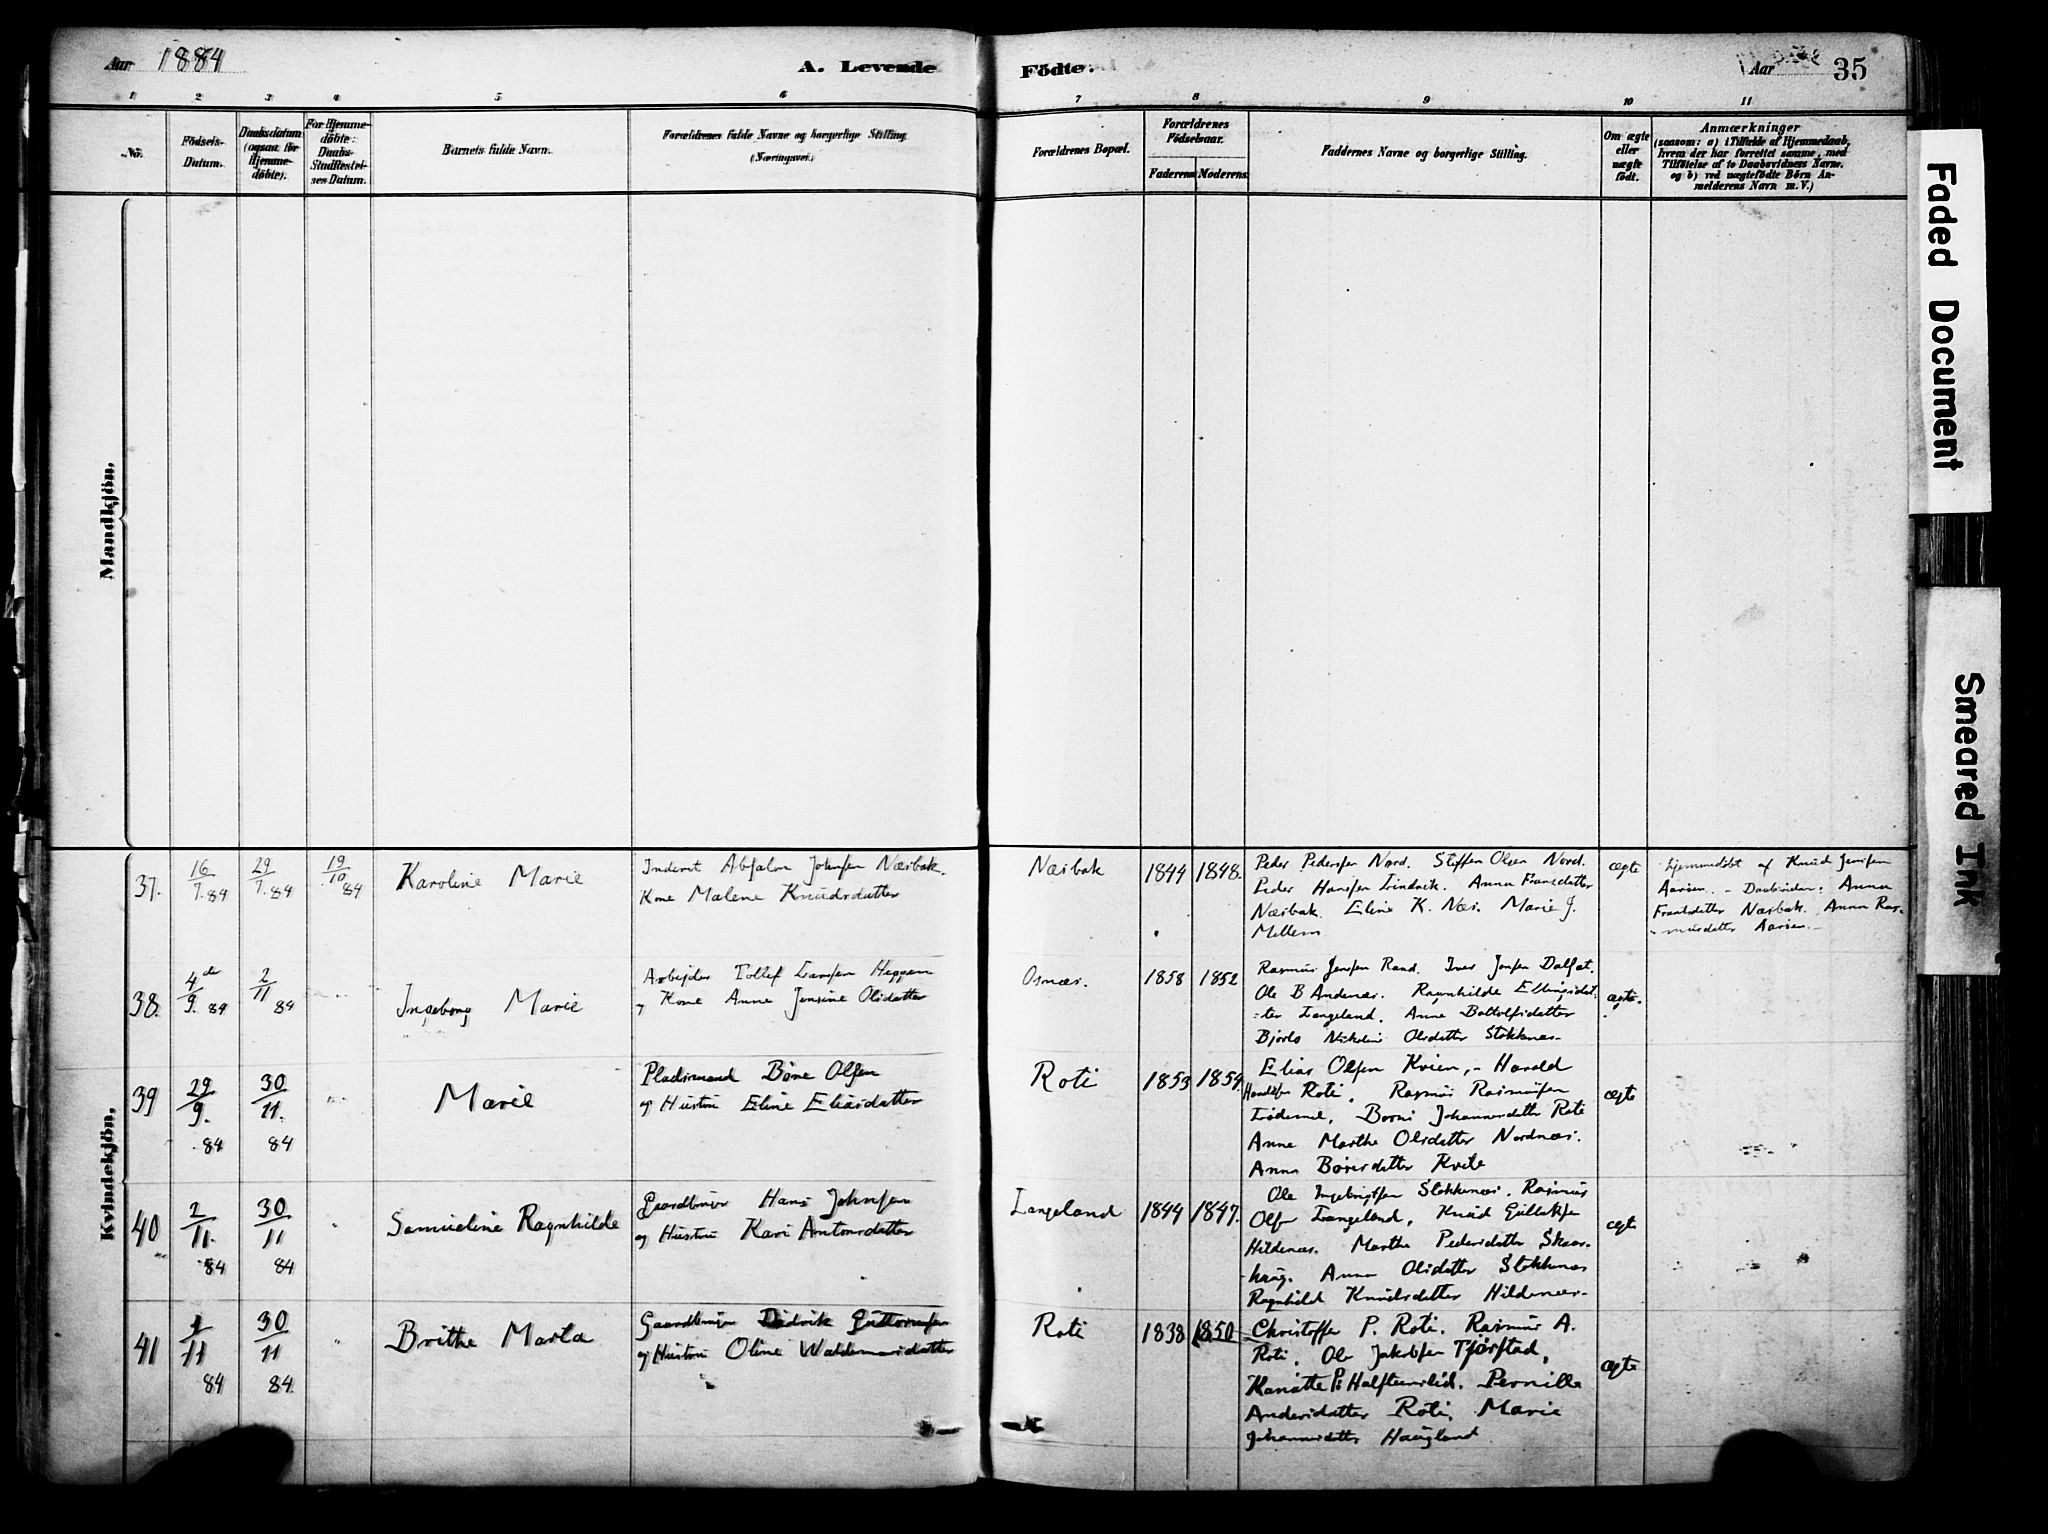 Aar 1884
A. Levende
Födte.
Aar
35
1 2 3 4 5 6 7 8 9 10 11
No.
Födsels-
Datum.
Daabsdatum
(ogsaa for
Hjemme-
döbte).
For Hjemme-
döbte:
Daabs-
Stadfæstel-
ses Datum.
Barnets fulde Navn.
Forældrenes fulde Navne og borgerlige Stilling.
(Næringsvei.)
Forældrenes Bopæl.
Forældrenes
Födselsaar.
Faderens
Moderens
Faddernes Navne og borgerlige Stilling.
Om ægte
eller
uægte
födt.
Anmærkninger
(saasom: a) i Tilfælde af Hjemmedaab,
hvem der har forrettet samme, med
Tilföielse af to Daabsvidners Navne,
og b) ved uægtefödte Börn An-
melderens Navn m. V.)
Mandkjön.
Kvindekjön.
37.
16/7. 84
29/7. 84
19/10 84
Karoline Marie
Inderst Absalon Johnsen Næsbak.
Kone Malene Knudsdatter
Næsbak
1844
1848.
Peder Pedersen Nord. Steffen Olsen Nord.
Peder Hansen Indrvik. Anna Fransdatter
Næsbak. Eline K. Næs. Marie J.
Mellem
ægte
Hjemmedøbt af Knud Jensen
Aarsen. - Daabsvidner: Anna
Frantsdatter Næsbak. Anna Ras-
musdatter Aarsen. -
38.
4de/9. 84
2/11 84
Ingeborg Marie
Arbejder Tollef Larsen Heggem
og Kone Anne Jensine Olsdatter
Osnæs.
1858
1852
Rasmus Jensen Rand. Iver Jonsen Dalsat.
Ole B Andenæs. Ragnhilde Ellingsdat-
ter Langeland. Anne Bottolfsdatter
Bjorlo Nikoline Olsdatter Stokkenæs-
ægte.
39
29/9. 84
30/11. 84
Marie
Pladsmand Böre Olsen
og Hustru Eline Eliasdatter
Roti
1853
1854
Elias Olsen Kvien, - Harald
Haralds. Roti, Rasmus Rasmussen
Lödemel, Borni Johannesdatter Roti
Anne Marthe Olsdatter Nordnæs.
Anna Börisdatter Kvite
ægte
40
2/11. 84
30/11 84
Samueline Ragnhilde
Gaardbruger Hans Johnsen
og Hustru Kari Antonsdatter
Langeland
1844
1847.
Ole Ingebrigtsen Stokkenæs. Rasmus
Olsen Langeland, Knud Gulleksen
Hildenæs. Marthe Pedersdatter Skaar-
haug. Anna Olsdatter Stokkenæs
Ragnhild Knudsdatter Hildenæs-
ægte
41
1/11 84
30/11 84.
Brithe Marta
Gaardbruger Didrik Guttormsen
og Hustru Oline Waldemarsdatter
Roti
1838
1850
Christoffer P. Roti. Rasmus A.
Roti. Ole Jakobsen Tjörstad,
Kanutte P. Halfteinslid. Pernille
Andersdatter Roti. Marie
Johannesdatter Haugland
ægte
Faded Document
Smeared Ink